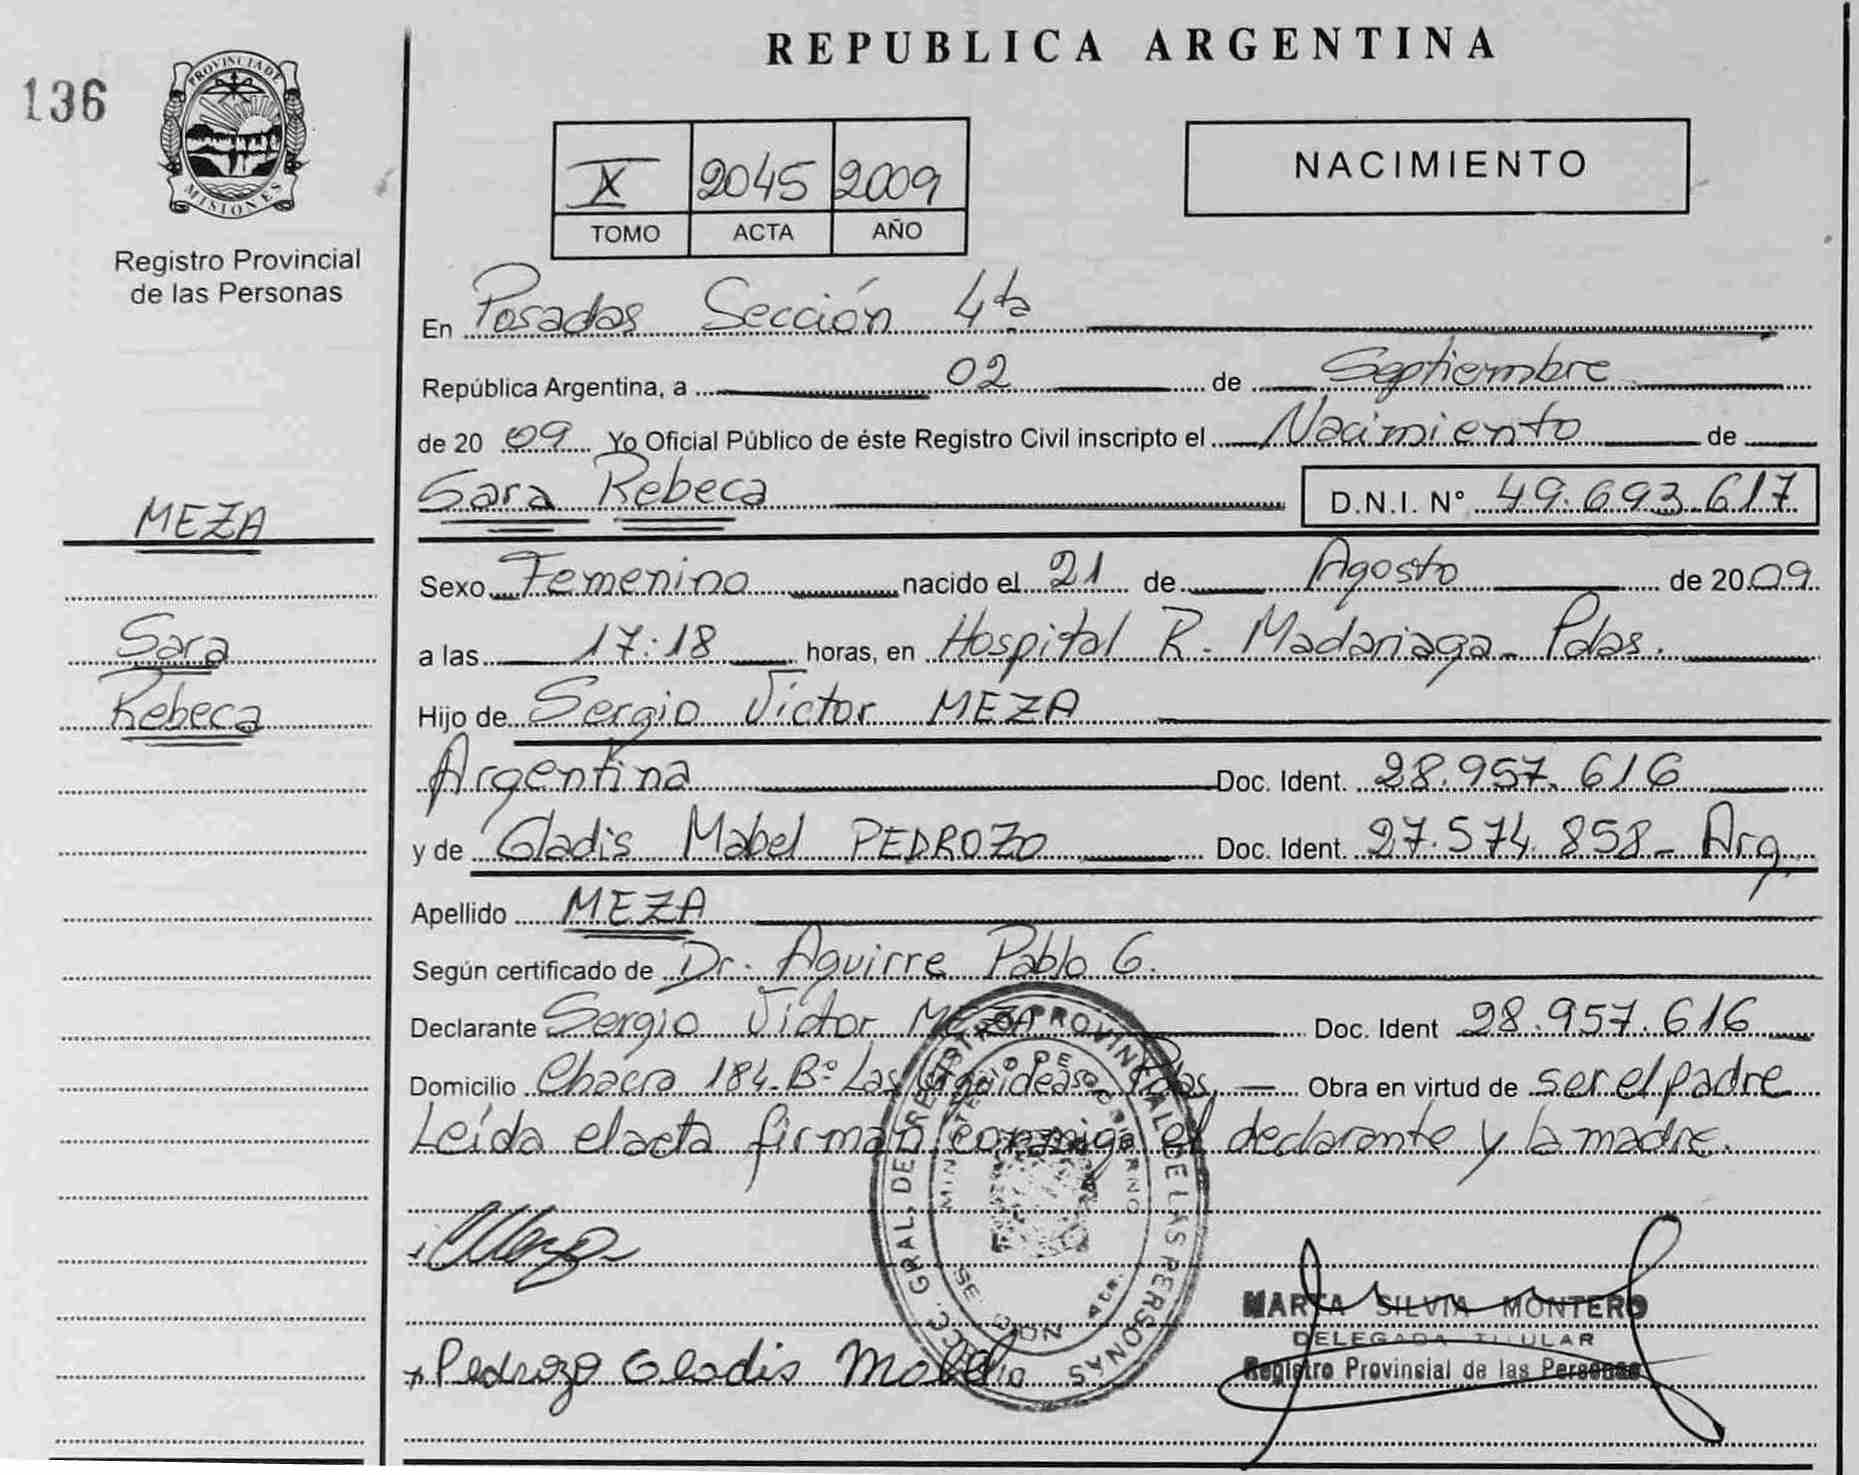 REPUBLICA ARGENTINA
136
PROVINCIA DE
MISIONES
Registro Provincial
de las Personas
X 2045 2009
TOMO ACTA AÑO
NACIMIENTO
En Posadas Sección 4ta
República Argentina, a 02 de Septiembre
de 20 09 Yo Oficial Público de éste Registro Civil inscripto el Nacimiento de
Sara Rebeca D.N.I. Nº 49.693.617
MEZA
Sara
Rebeca
Sexo Femenino nacido el 21 de Agosto de 2009
a las 17:18 horas, en Hospital R. Madariaga - Pdas.
Hijo de Sergio Victor MEZA
Argentina Doc. Ident. 28.957.616
y de Gladis Mabel PEDROZO Doc. Ident. 27.574.858 - Arg.
Apellido MEZA
Según certificado de Dr. Aguirre Pablo G.
Declarante Sergio Victor MEZA Doc. Ident 28.957.616
Domicilio Chacra 184 - Bº Las Pdas. Obra en virtud de ser el padre
Leída el acta firman conmigo el declarante y la madre.
DIRECC. GRAL. DE REGISTRO PROVINCIAL DE LAS PERSONAS
MINISTERIO DE GOBIERNO
Meza
Pedrozo Gladis Mabel
MARTA SILVIA MONTERO
DELEGADA TITULAR
Registro Provinsial de las Personas